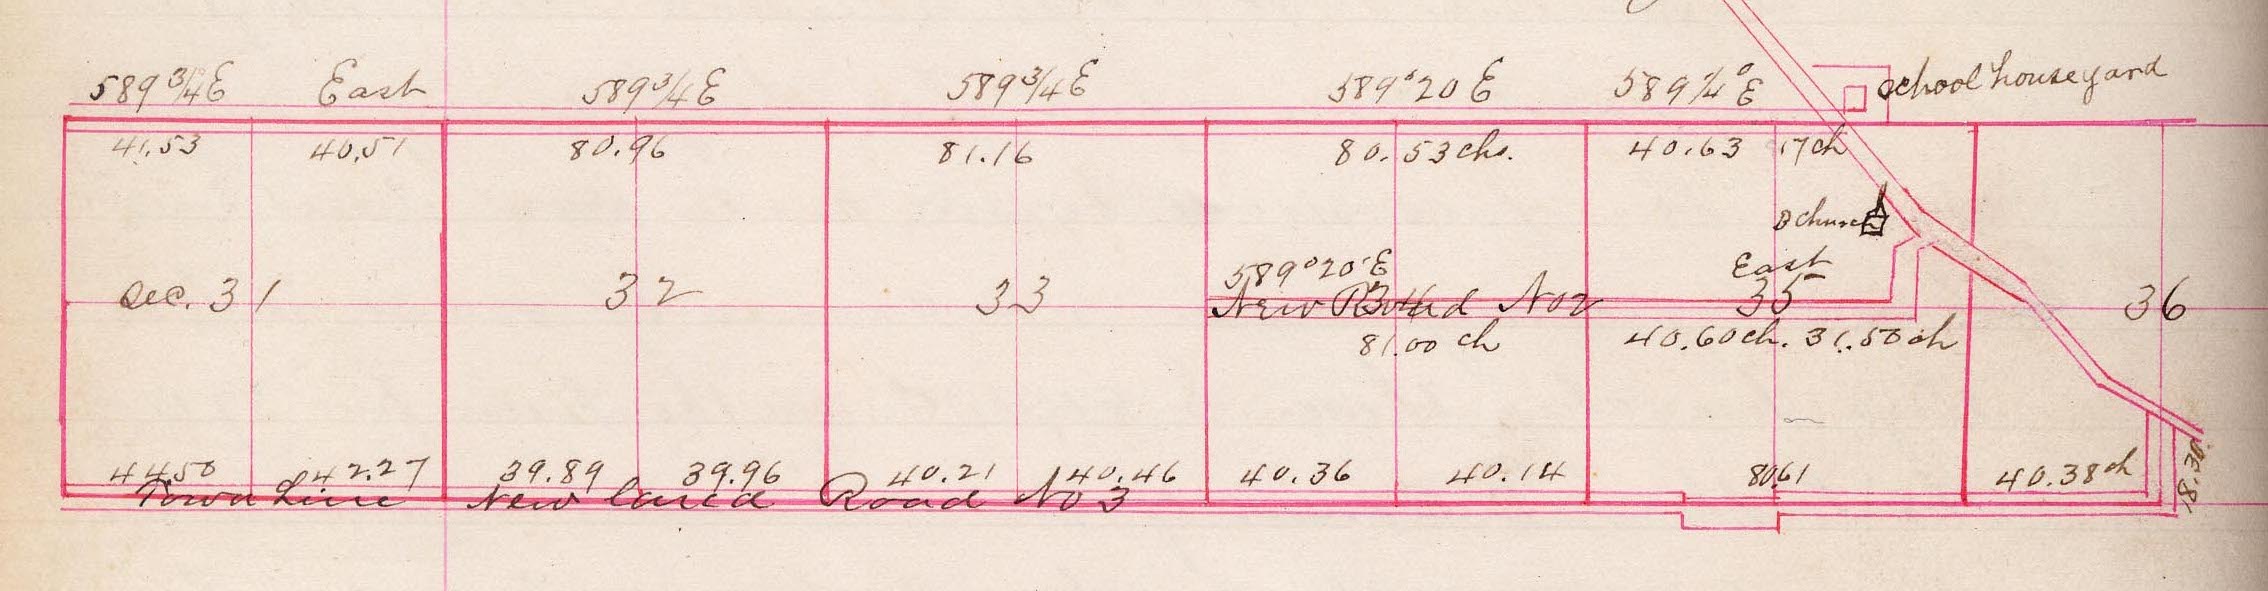 S89 3/4 E East S89 3/4 E S89 3/4 E S89°20 E S89 1/4° E School house yard
41.53 40.51 80.96 81.16 80.53 chs. 40.63 17 ch
B Church
S89°20' E East
Sec. 31 32 33 34 35 36
New Road No 2
81.00 ch 40.60 ch. 31.50 ch
44.50 42.27 39.89 39.96 40.21 40.46 40.36 40.14 80.61 40.38 ch
8.30
Town Line Road No 3